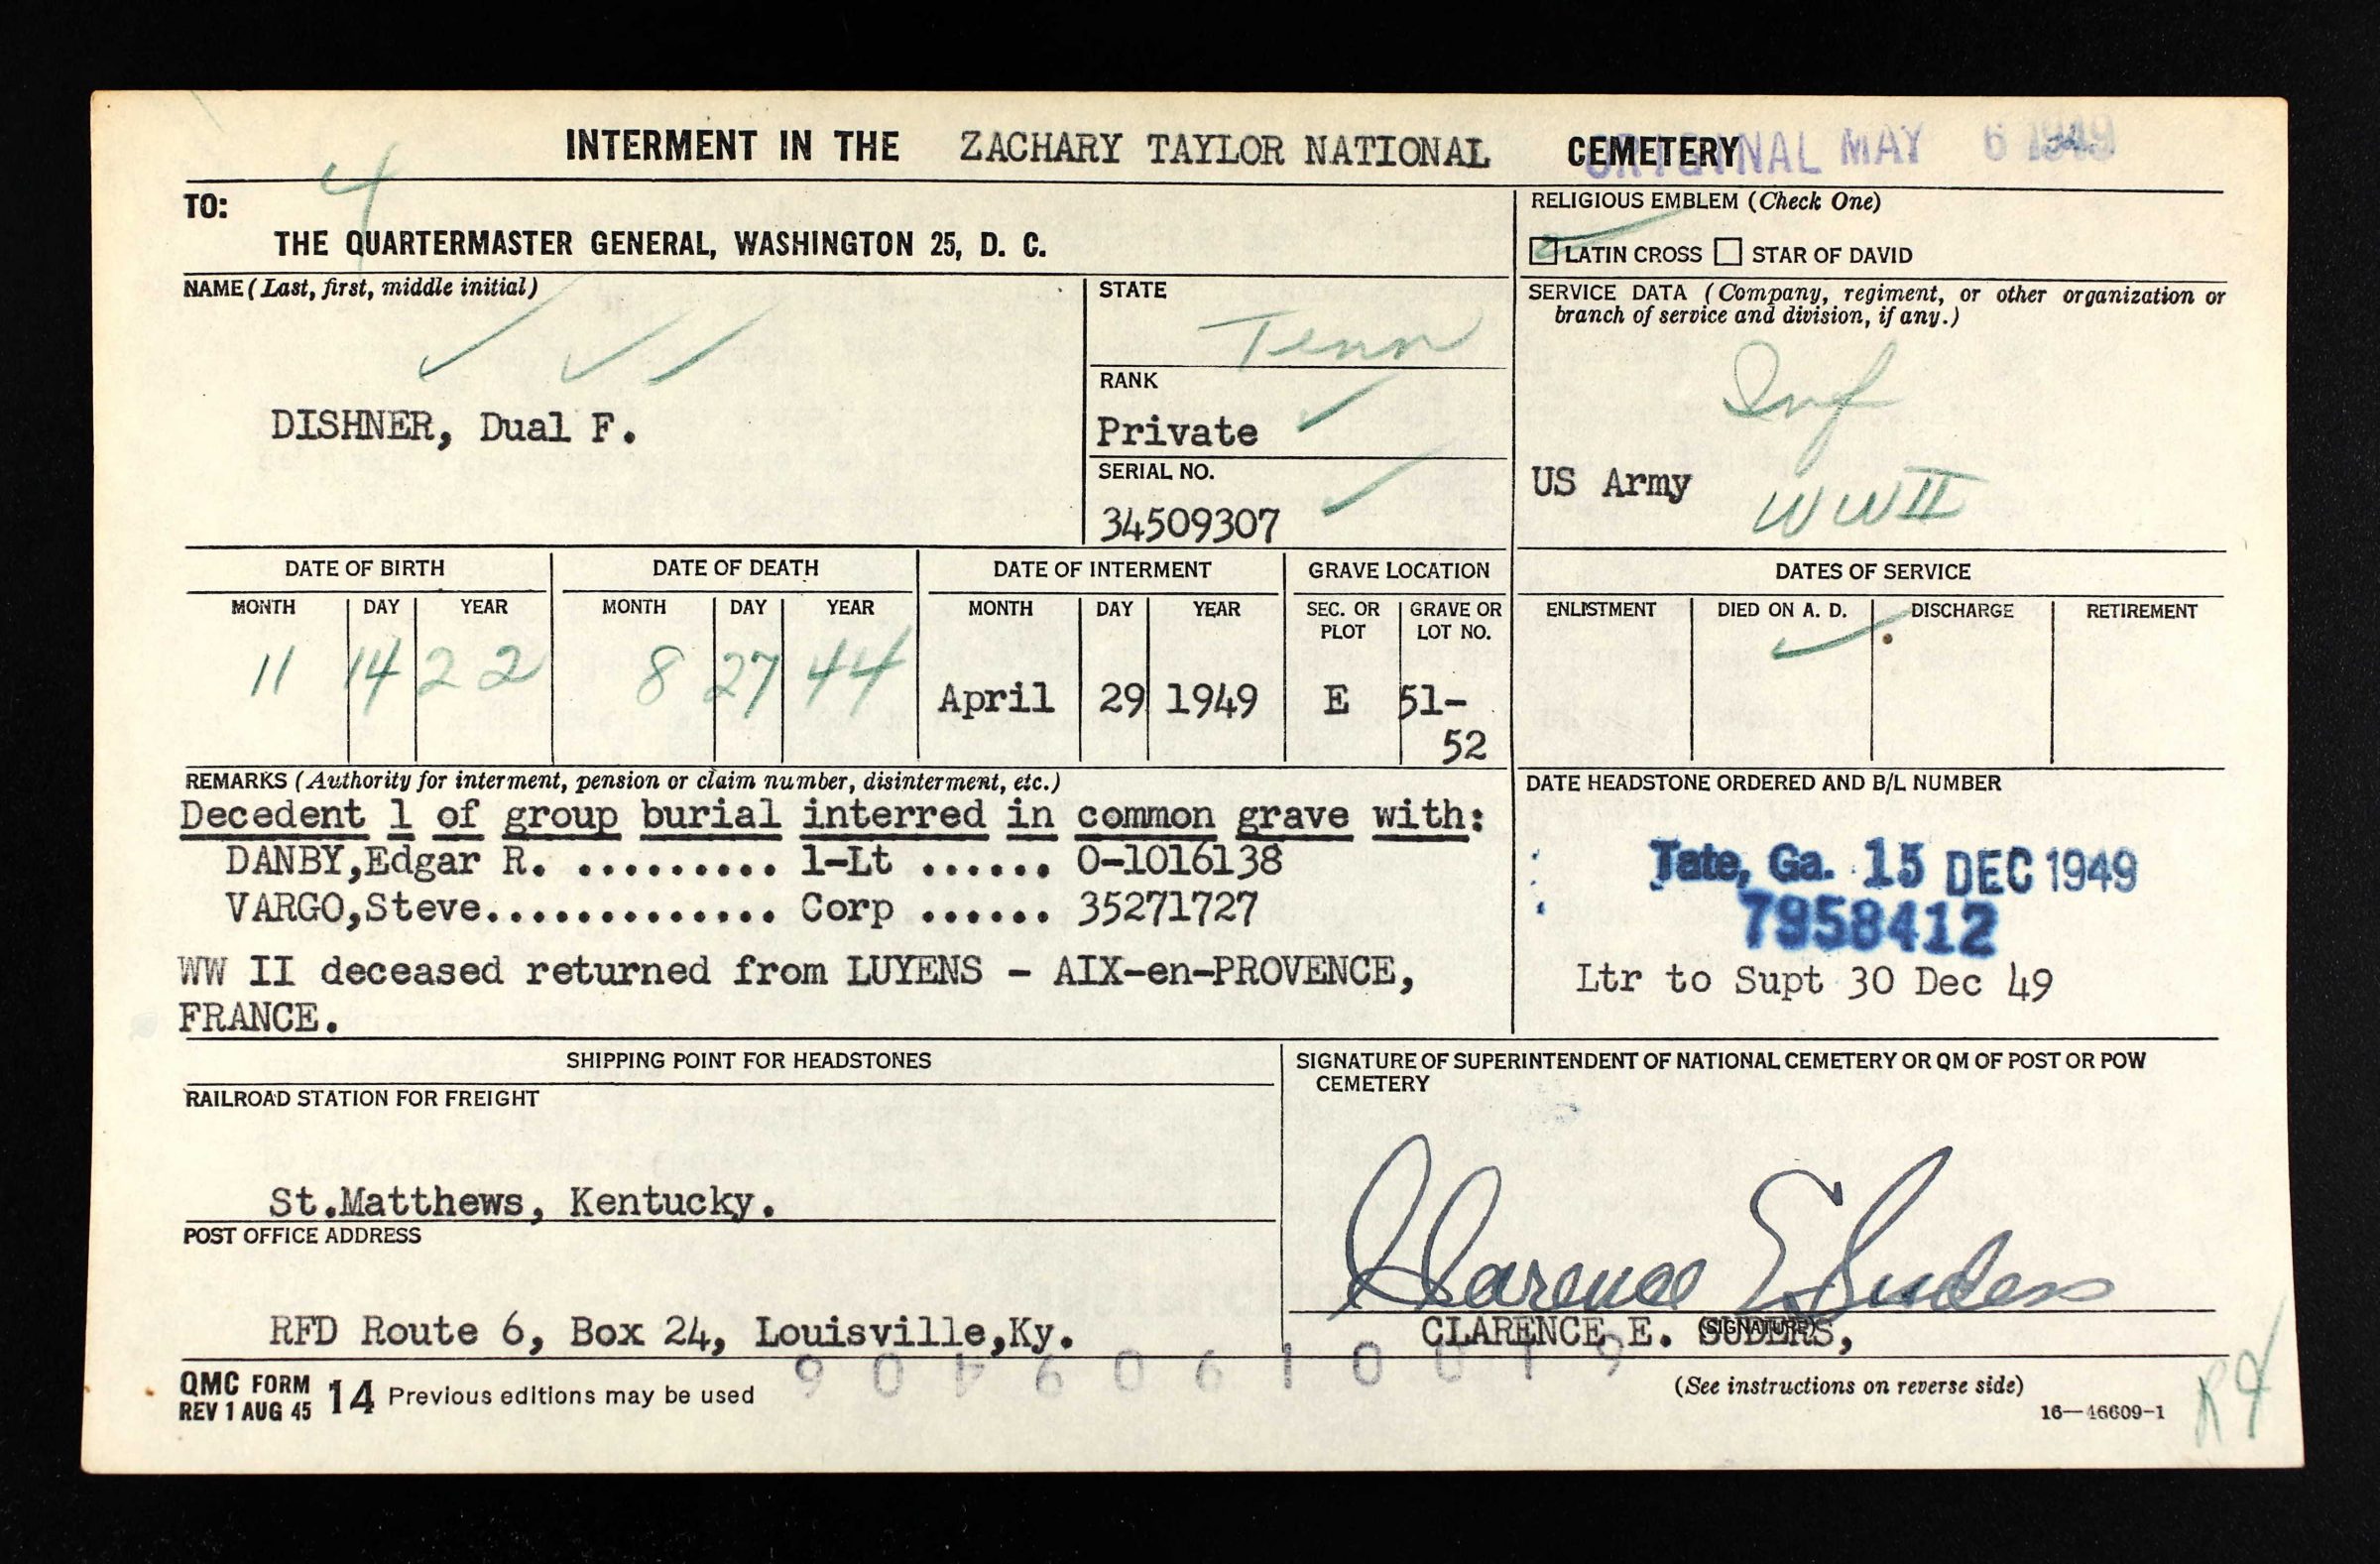 INTERMENT IN THE ZACHARY TAYLOR NATIONAL CEMETERY
ORIGINAL MAY 6 1949
4
TO:
THE QUARTERMASTER GENERAL, WASHINGTON 25, D. C.
RELIGIOUS EMBLEM (Check One)
LATIN CROSS STAR OF DAVID
NAME (Last, first, middle initial)
DISHNER, Dual F.
STATE
Tenn
RANK
Private
SERIAL NO.
34509307
SERVICE DATA (Company, regiment, or other organization or
branch of service and division, if any.)
Inf
US Army WW II
DATE OF BIRTH DATE OF DEATH DATE OF INTERMENT GRAVE LOCATION
MONTH DAY YEAR MONTH DAY YEAR MONTH DAY YEAR SEC. OR PLOT GRAVE OR LOT NO.
11 14 22 8 27 44 April 29 1949 E 51-
52
DATES OF SERVICE
ENLISTMENT DIED ON A. D. DISCHARGE RETIREMENT
REMARKS (Authority for interment, pension or claim number, disinterment, etc.)
Decedent 1 of group burial interred in common grave with:
DANBY,Edgar R. ......... 1-Lt ...... O-1016138
VARGO,Steve............. Corp ...... 35271727
WW II deceased returned from LUYENS - AIX-en-PROVENCE,
FRANCE.
DATE HEADSTONE ORDERED AND B/L NUMBER
Tate, Ga. 15 DEC 1949
7958412
Ltr to Supt 30 Dec 49
SHIPPING POINT FOR HEADSTONES
RAILROAD STATION FOR FREIGHT
St.Matthews, Kentucky.
POST OFFICE ADDRESS
RFD Route 6, Box 24, Louisville,Ky.
SIGNATURE OF SUPERINTENDENT OF NATIONAL CEMETERY OR QM OF POST OR POW
CEMETERY
Clarence E Suders
(SIGNATURE)
CLARENCE E. SUDERS,
QMC FORM 14 Previous editions may be used
REV 1 AUG 45
(See instructions on reverse side)
16—46609-1